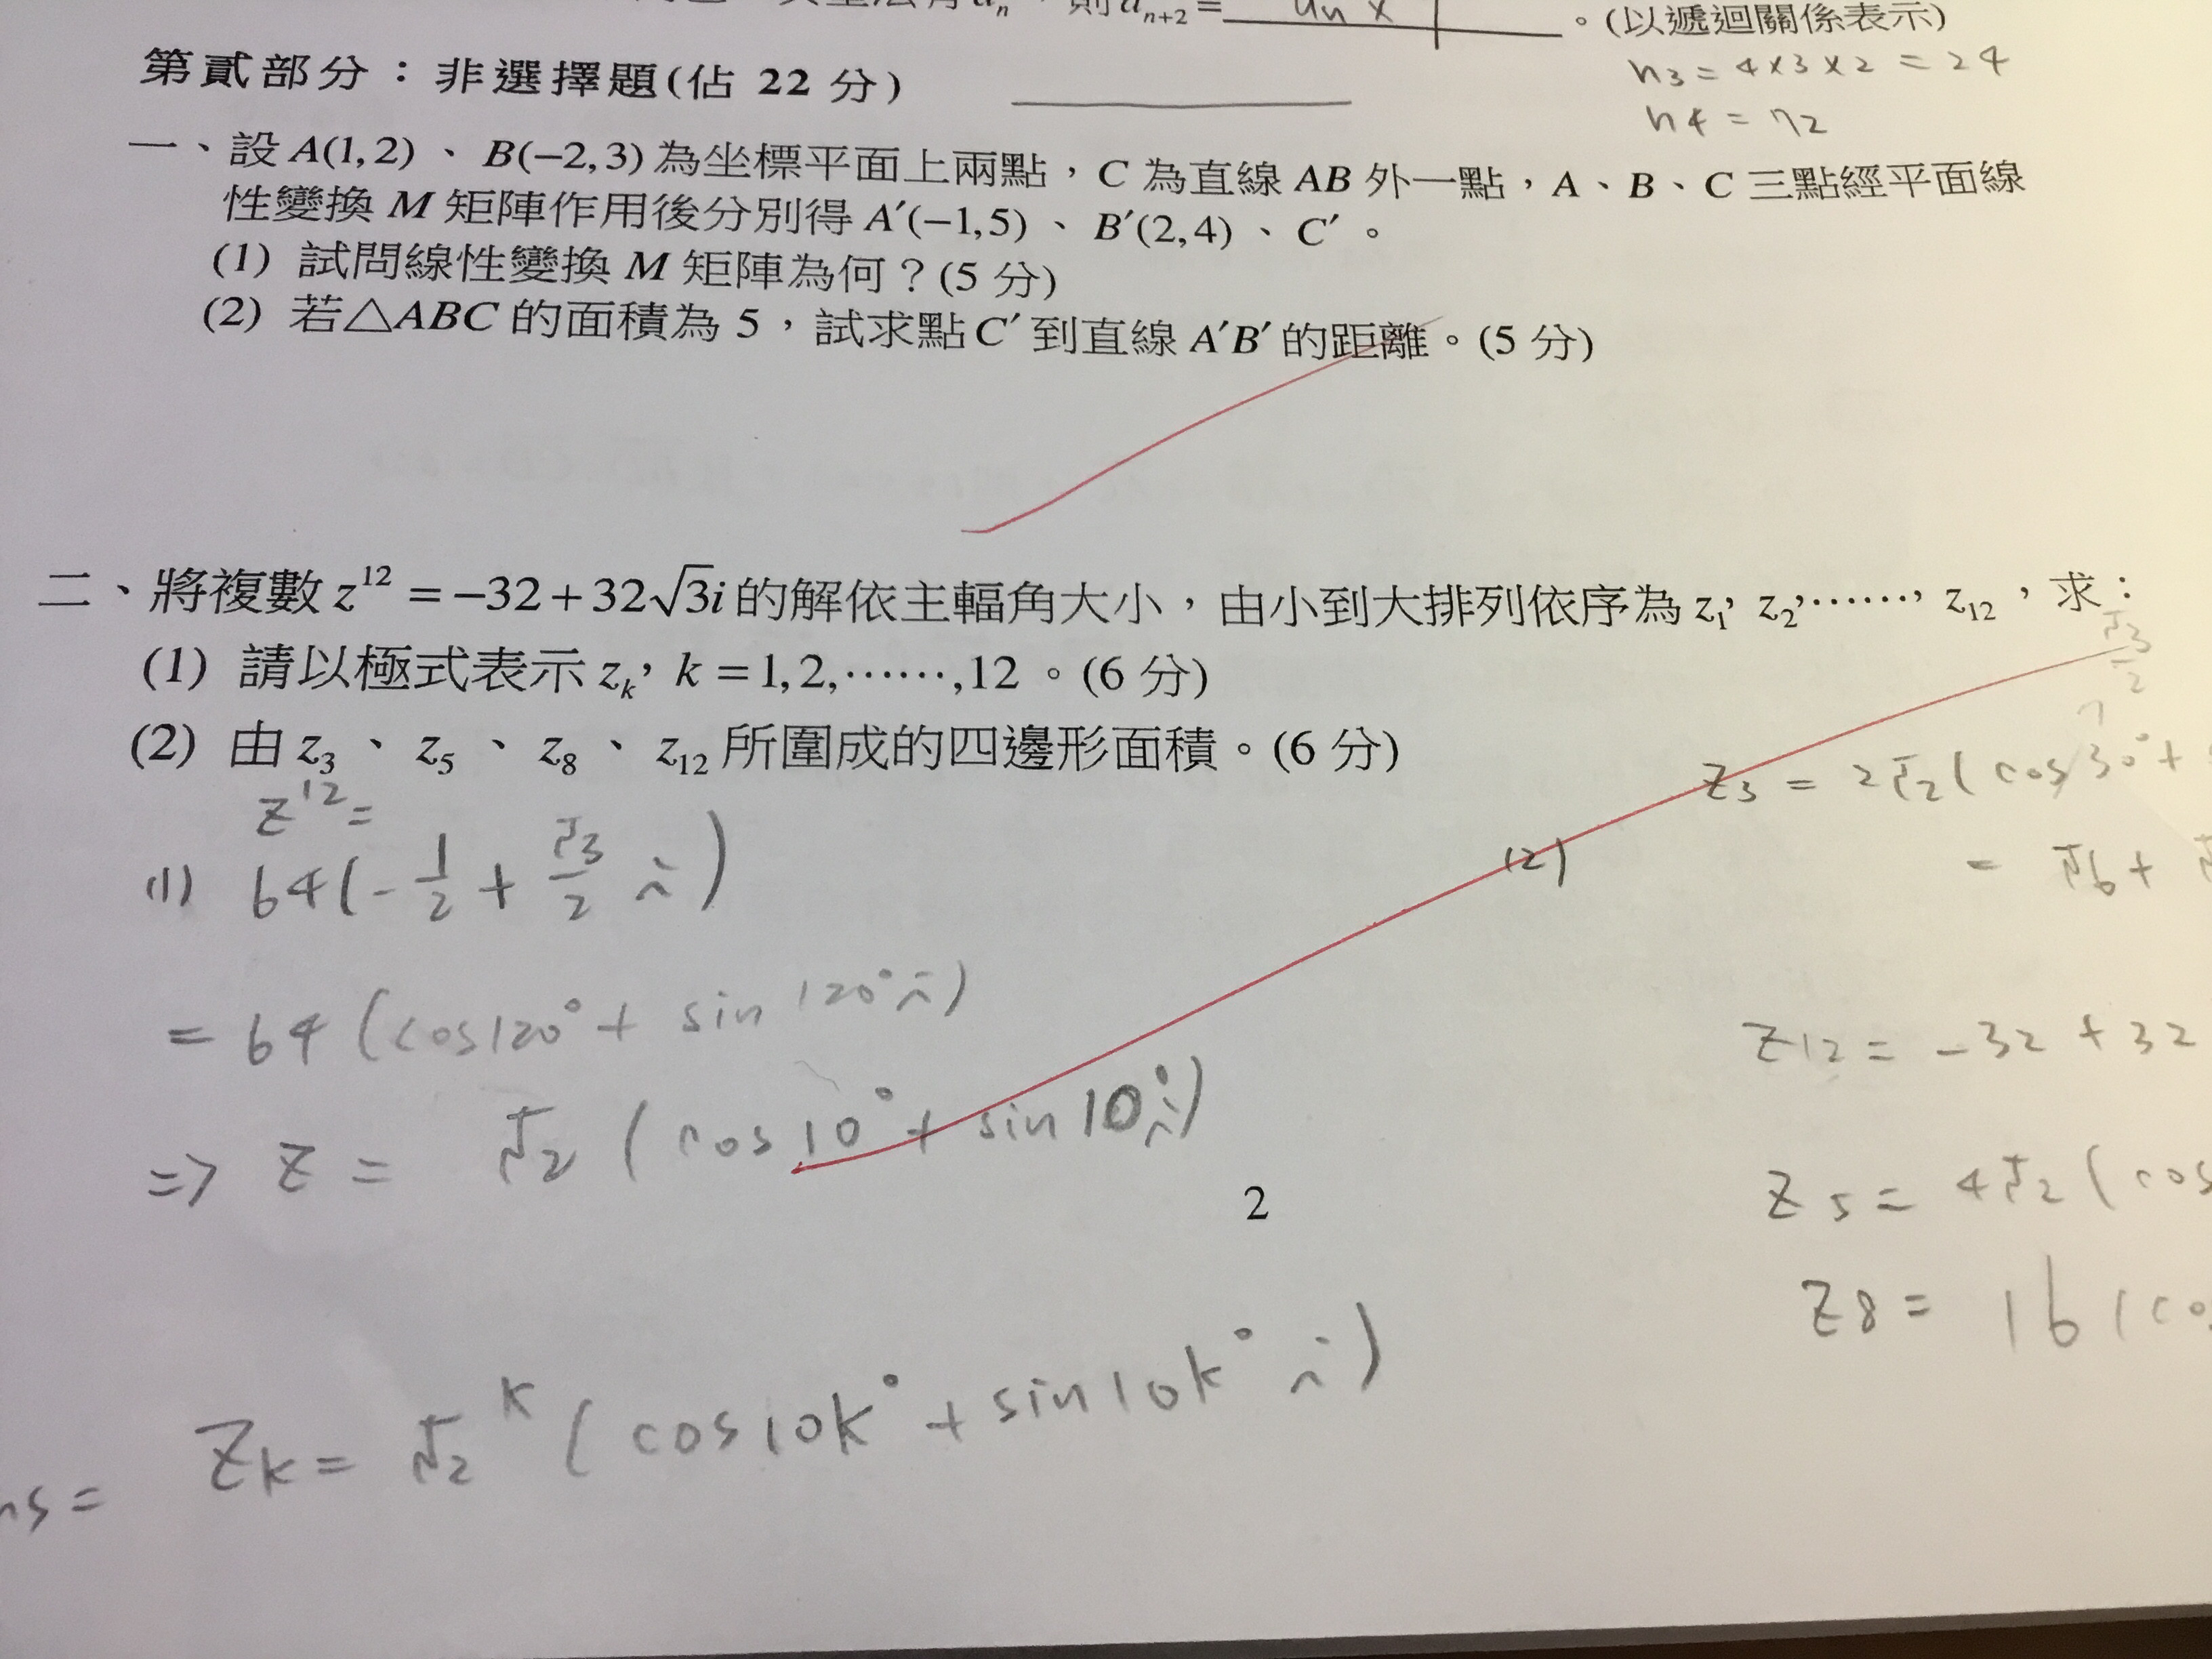 則 aₙ₊₂= 。(以遞迴關係表示)
n3 = 4×3×2 = 24
n4 = 72
第貳部分：非選擇題(佔 22 分)
一、設 A(1,2) 、 B(−2,3) 為坐標平面上兩點，C 為直線 AB 外一點，A、B、C 三點經平面線
性變換 M 矩陣作用後分別得 A′(−1,5) 、 B′(2,4) 、 C′ 。
(1) 試問線性變換 M 矩陣為何？(5 分)
(2) 若△ABC 的面積為 5，試求點 C′ 到直線 A′B′ 的距離。(5 分)
二、將複數 z¹² = −32+32√3i 的解依主輻角大小，由小到大排列依序為 z₁, z₂,……, z₁₂，求：
(1) 請以極式表示 zₖ, k = 1, 2,……,12 。(6 分)
(2) 由 z₃ 、 z₅ 、 z₈ 、 z₁₂ 所圍成的四邊形面積。(6 分)
z¹² =
(1) 64(-1/2 + √3/2 i)
= 64 (cos120° + sin 120° i)
=> z = √2 ( cos10° + sin 10° i)
zk = √2^k ( cos10k° + sin10k° i )
√3/2
(2)
z3 = 2√2 ( cos30° +
= √6 +
z12 = -32 + 32
z5 = 4√2 ( cos
z8 = 16 ( co
2